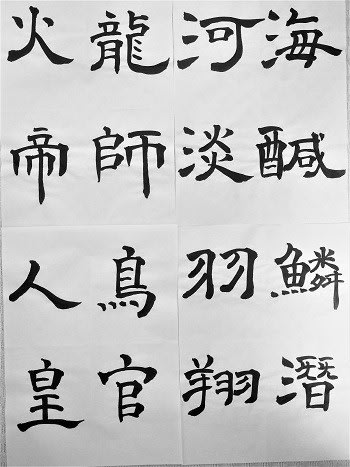 海醎
河淡
鱗潛
羽翔
龍師
火帝
鳥官
人皇